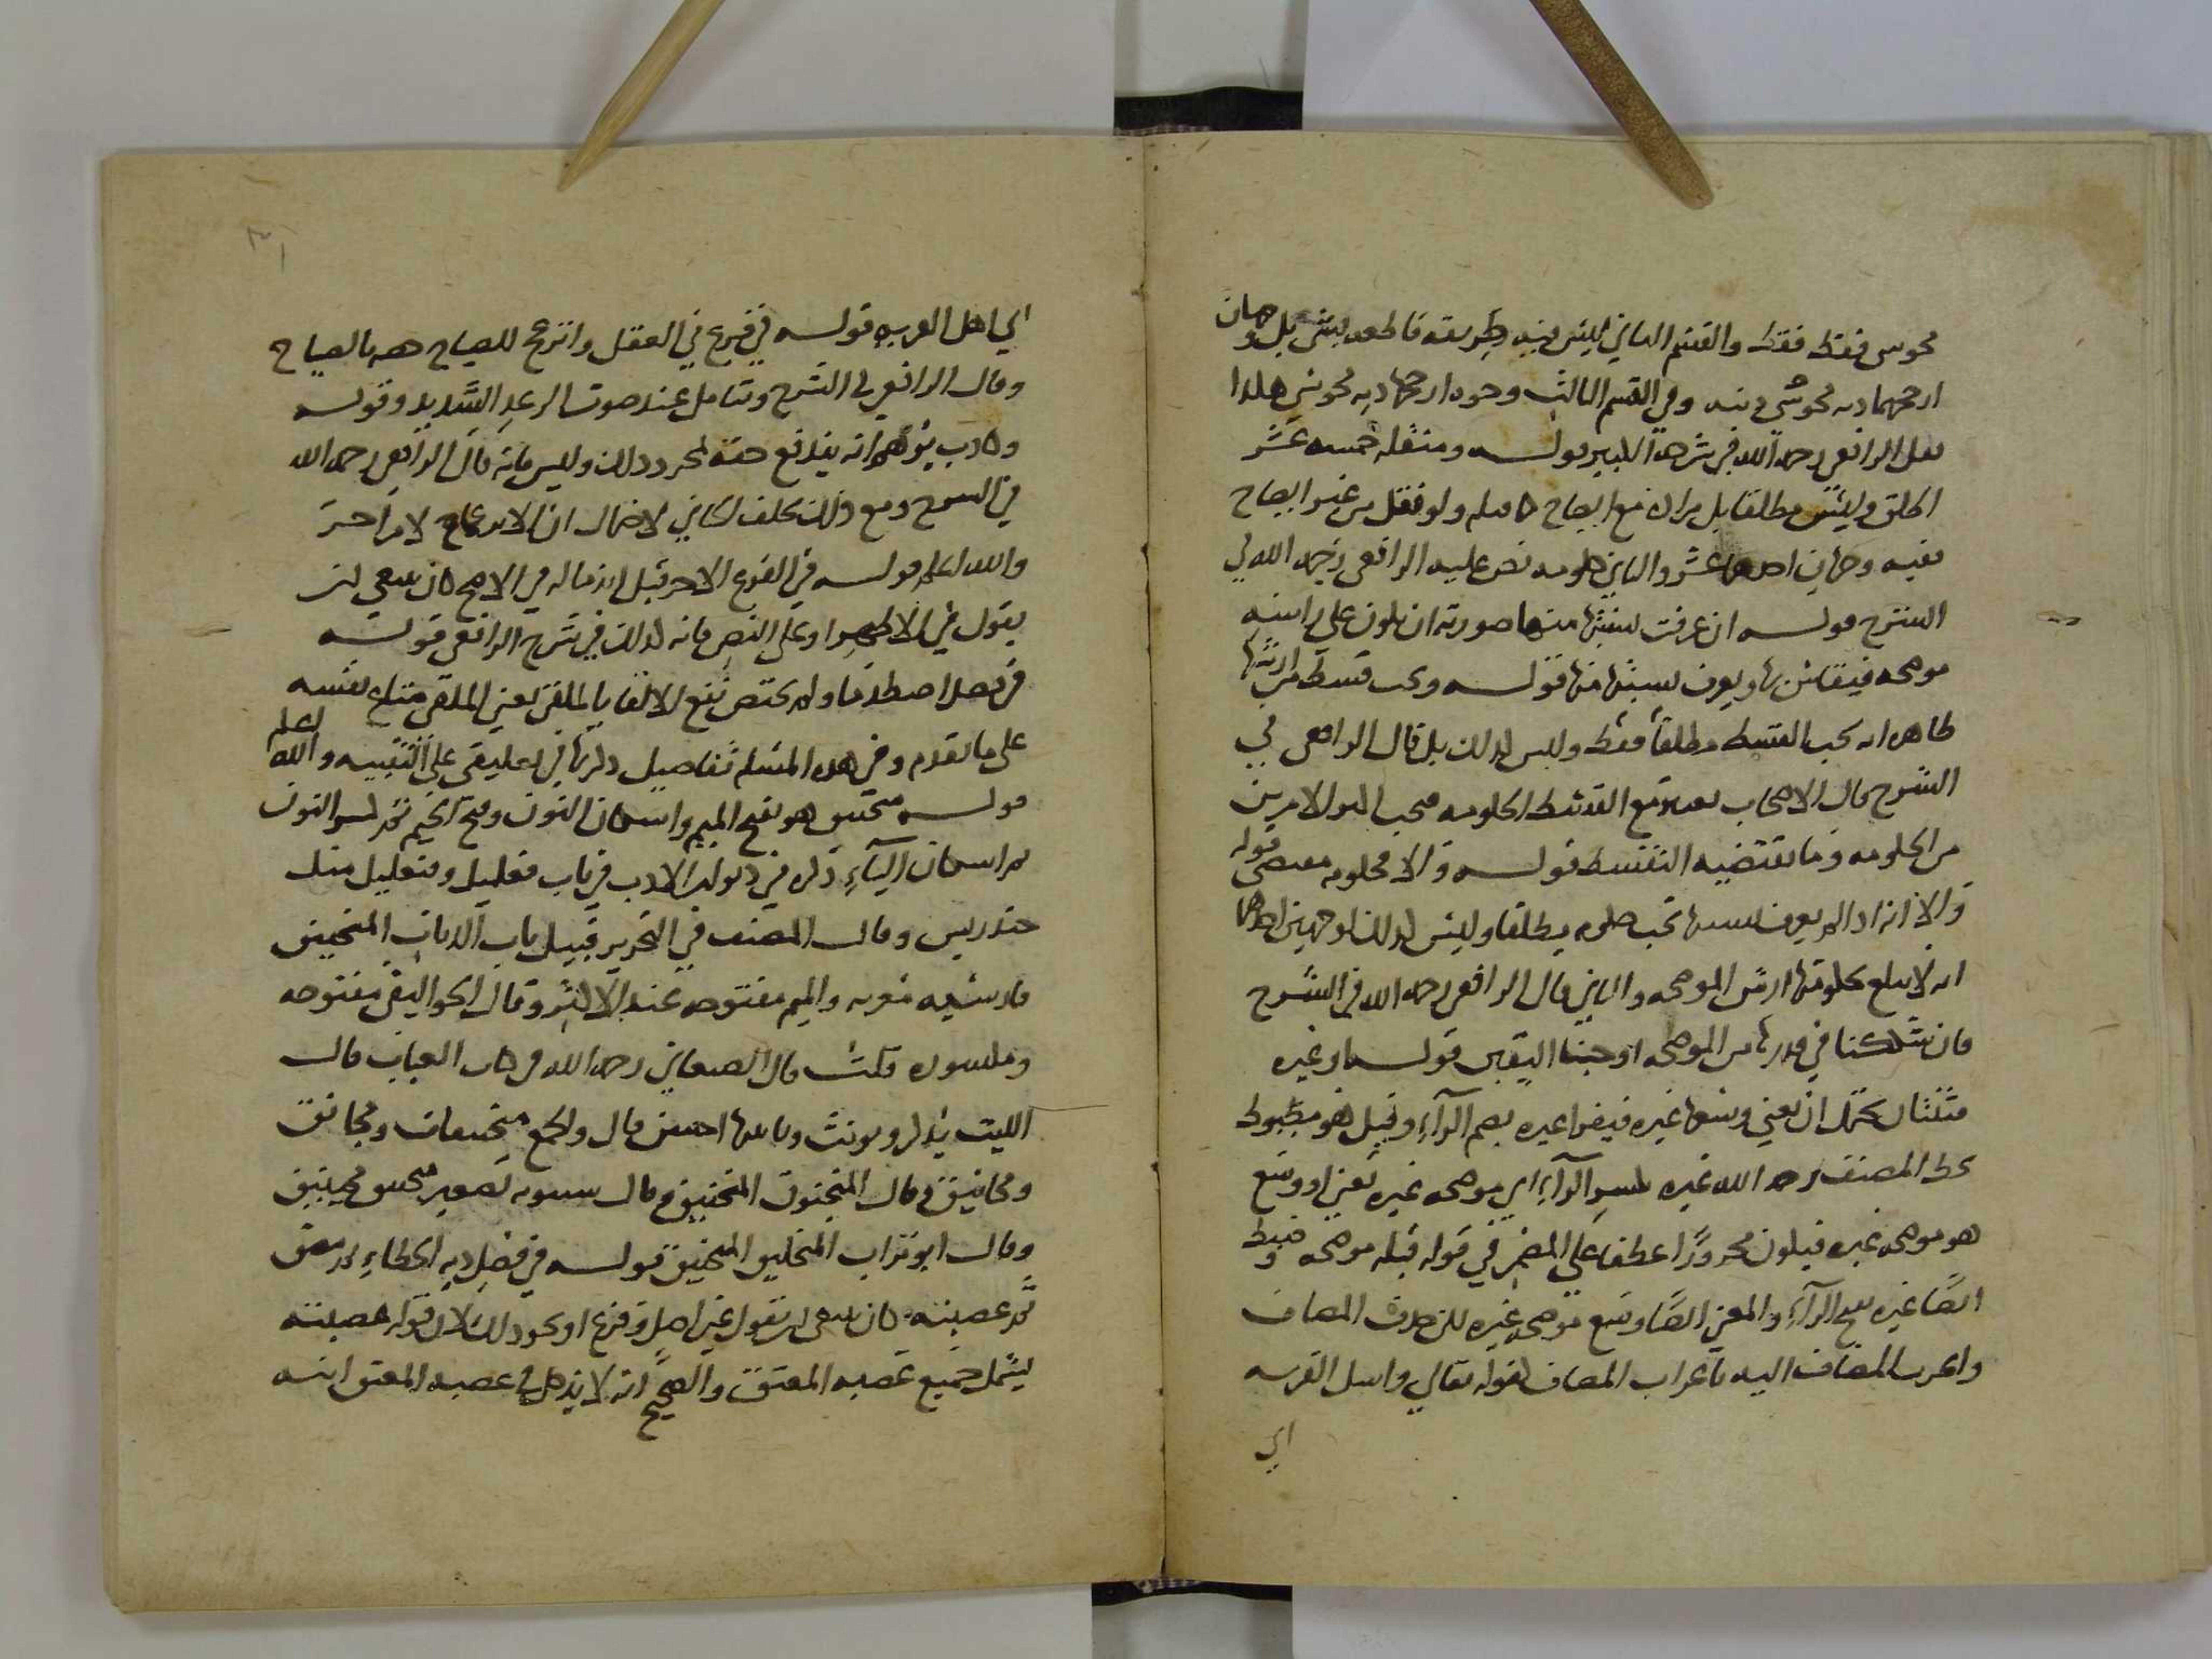 مجوسي فقط فقط والقسم الثاني ليس فيه طريقة قاطعة بشيء بل وجهان
ارجحهما دية مجوسي دينه وفي القسم الثالث وجوه ارجحها دية مجوسي هكذا
نقل الرافعي رحمه الله في شرحه الكبير قوله ومنقلة خمسة عشر
اطلق وليس مطلقا بل مراده مع ايضاح كامله ولو نقل من غير ايضاح
ففيه وجهان احدهما عشر والثاني حكومة نص عليه الرافعي رحمه الله في
الشرح قوله ان عرفت نسبتها منها صورته ان يكون على راسه
موضحة فيقاس بها ويعرف نسبتها منها قوله وجب قسط من ارشها
ظاهره انه يجب القسط مطلقا فقط وليس كذلك بل قال الرافعي في
الشرح قال الاصحاب يعتبر مع القسط الحكومة فيجب اكثر الامرين
من الحكومة وما يقتضيه التقسيط قوله والا فحكومة مقتضى قوله
والا انه اذا لم يعرف نسبتها تجب حكومة مطلقا وليس كذلك لوجهين احدهما
انه لا يبلغ بحكومتها ارش الموضحة والثاني قال الرافعي رحمه الله في الشرح
فان شككنا في قدرها من الموضحة اوجبنا اليقين قوله او غيره
فثنتان يحتمل ان يعني وسعها غيره فيقرا غيره بضم الراء وقيل هو مضبوط
بخط المصنف رحمه الله غيره بكسر الراء اي موضحة غيره يعني او وسع
هو موضحة غيره فيكون مجرورا عطفا على المضمر في قوله قبله موضحته وضبط
ايضا غيره بفتح الراء والمعنى ايضا وسع موضحة غيره لكن حذف المضاف
واعرب المضاف اليه باعراب المضاف كقوله تعالى واسل القرية
اي
٣١
اي اهل القرية قوله في فرع في العقل وانزعج للصياح هو بالصياح
وقال الرافعي في الشرح وتتامل عند صوت الرعد الشديد وقوله
وكاذب يتوهم انه يندفع حقه بمجرد ذلك وليس فانه قال الرافعي رحمه الله
في الشرح ومع ذلك يحلف الجاني لاحتمال ان الانزعاج لامر اخر
والله اعلم قوله في الفرع الاخر قبل اندماله في الاصح كان ينبغي ان
يقول في الاظهر او على النص فانه كذلك في شرح الرافعي قوله
في فصل اصطدما ولم يختص نفع الالقاء بالملقي يعني الملقي متاع نفسه
على ما تقدم وفي هذه المسئلة تفاصيل ذكرتها في تعليقي على التنبيه والله اعلم
قوله منجنيق هو بفتح الميم واسكان النون وفتح الجيم ثم كسر النون
ثم اسكان الياء ذكره في ديوان الادب في باب فعلليل وفنعليل مثل
خندريس وقال المصنف في التحرير قبيل باب الديات المنجنيق
فارسية معربة والميم مفتوحة عند الاكثر وقال الجواليقي مفتوحة
ومكسورة قلت قال الصغاني رحمه الله في كتاب العباب قال
الليث يذكر ويونث وتانيثها احسن قال والجمع منجنيقات ومجانق
ومجانيق وقال المنجنوق المنجنيق وقال سيبويه تصغير منجنيق مجينيق
وقال ابو تراب المنجليق المنجنيق قوله في فصل دية الخطاء ثم معتق
ثم عصبته كان ينبغي ان يقول غير اصل وفرع او نحو ذلك لان قوله عصبته
ليشمل جميع عصبة المعتق والصحيح انه لا يدخل في عصبة المعتق ابنه